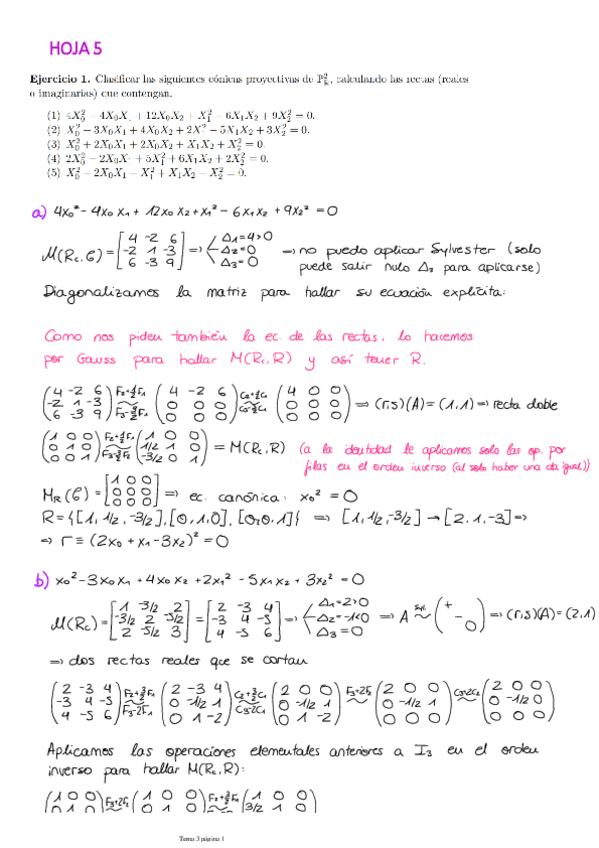 HOJA 5
Ejercicio 1. Clasificar las siguientes cónicas proyectivas de P²ₖ, calculando las rectas (reales
o imaginarias) que contengan.
(1) 4X₀² − 4X₀X₁ + 12X₀X₂ + X₁² − 6X₁X₂ + 9X₂² = 0.
(2) X₀² − 3X₀X₁ + 4X₀X₂ + 2X₁² − 5X₁X₂ + 3X₂² = 0.
(3) X₀² + 2X₀X₁ + 2X₀X₂ + X₁X₂ + X₂² = 0
(4) 2X₀² − 2X₀X₁ + 5X₁² + 6X₁X₂ + 2X₂² = 0.
(5) X₀² − 2X₀X₁ − X₁² + X₁X₂ − X₂² = 0.
a) 4x₀² - 4x₀x₁ + 12x₀x₂ + x₁² - 6x₁x₂ + 9x₂² = 0
M(Rc,G) = [4 -2 6; -2 1 -3; 6 -3 9] ⇒ Δ₁=4>0 Δ₂=0 Δ₃=0 ⇒ no puedo aplicar Sylvester (solo
puede salir nulo Δ₃ para aplicarse)
Diagonalizamos la matriz para hallar su ecuación explícita:
Como nos piden también la ec. de las rectas, lo hacemos
por Gauss para hallar M(Rc,R) y así tener R.
(4 -2 6; -2 1 -3; 6 -3 9) F₂+½F₁ F₃-3/2F₁ (4 -2 6; 0 0 0; 0 0 0) C₂+½C₁ C₃-3/2C₁ (4 0 0; 0 0 0; 0 0 0) ⇒ (r,s)(A)=(1,1) ⇒ recta doble
(1 0 0; 0 1 0; 0 0 1) F₂+½F₁ F₃-3/2F₁ (1 0 0; 1/2 1 0; -3/2 0 1) = M(Rc,R) (a la identidad le aplicamos solo las op. por
filas en el orden inverso (al solo haber una da igual))
M_R(G) = [1 0 0; 0 0 0; 0 0 0] ⇒ ec. canónica: x₀² = 0
R = {[1, 1/2, -3/2], [0,1,0], [0,0,1]} ⇒ [1, 1/2, -3/2] → [2, 1, -3] ⇒
⇒ r ≡ (2x₀ + x₁ - 3x₂)² = 0
b) x₀² - 3x₀x₁ + 4x₀x₂ + 2x₁² - 5x₁x₂ + 3x₂² = 0
M(Rc) = [1 -3/2 2; -3/2 2 -5/2; 2 -5/2 3] = [2 -3 4; -3 4 -5; 4 -5 6] ⇒ Δ₁=2>0 Δ₂=-1<0 Δ₃=0 ⇒ A Syl. (+ - 0) ⇒ (r,s)(A)=(2,1)
⇒ dos rectas reales que se cortan
(2 -3 4; -3 4 -5; 4 -5 6) F₂+3/2F₁ F₃-2F₁ (2 -3 4; 0 -1/2 1; 0 1 -2) C₂+3/2C₁ C₃-2C₁ (2 0 0; 0 -1/2 1; 0 1 -2) F₃+2F₂ (2 0 0; 0 -1/2 1; 0 0 0) C₃+2C₂ (2 0 0; 0 -1/2 0; 0 0 0)
Aplicamos las operaciones elementales anteriores a I₃ en el orden
inverso para hallar M(Rc,R):
(1 0 0; 0 1 0 F₃+2F₂ (1 0 0; 0 1 0 F₂+3/2F₁ (1 0 0; 3/2 1
Tema 3 página 1